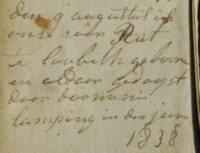 den 9 augustus is
onse soon Piet
te Lobith geboore
en aldaar gedoopt
door doomeni
Lamping in den jare
1838